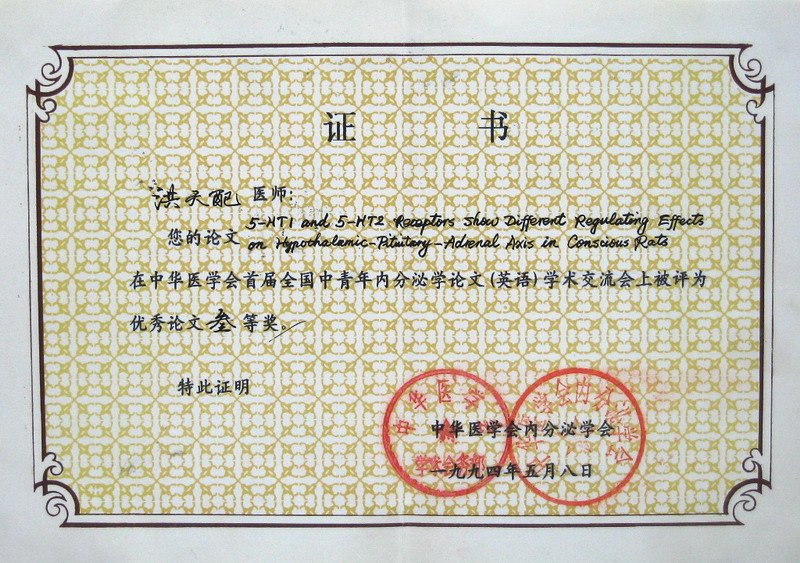 证 书
洪天配 医师:
您的论文 5-HT1 and 5-HT2 Receptors Show Different Regulating Effects
on Hypothalamic-Pituitary-Adrenal Axis in Conscious Rats
在中华医学会首届全国中青年内分泌学论文(英语)学术交流会上被评为
优秀论文叁等奖。
特此证明
中华医学会内分泌学会
一九九四年五月八日
中华医学
学术会务部
学会内分泌学会